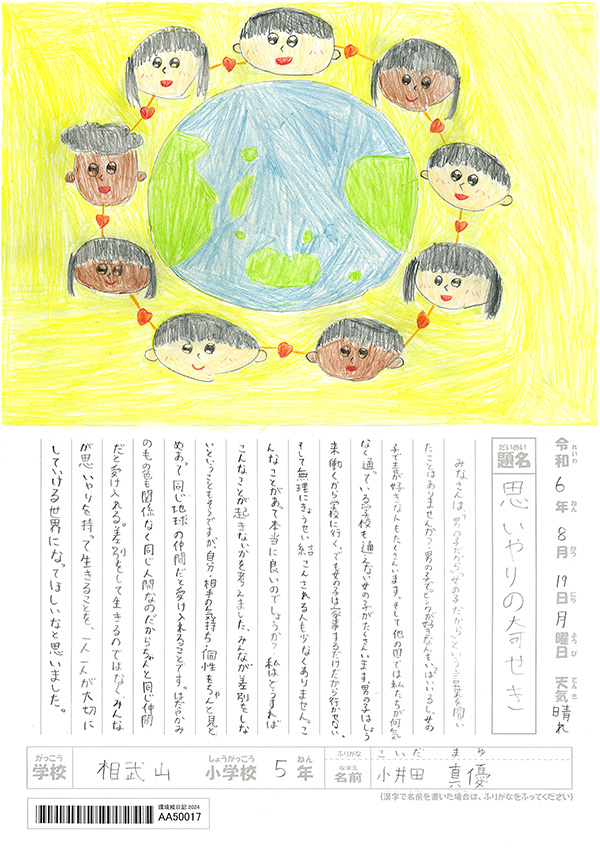 令和6年8月19日月曜日 天気 晴れ
れいわ ねん がつ にち ようび てんき
だいめい
題名 思いやりの奇せき
みなさんは、「男の子だから」「女の子だから」という言葉を聞い
たことはありませんか?男の子でピンクが好きな人もいっぱいいるし、女の
子で青が好きな人もたくさんいます。そして他の国では私たちが何気
なく通っている学校も通えない女の子がたくさんいます。男の子はしょう
来働くから学校に行く、でも女の子は家事するだけだから行かせない、
そして無理にきょうせい結こんされる人も少なくありません。こ
んなことがあって本当に良いのでしょうか?私はどうすれば
こんなことが起きないかを考えました。みんなが差別をしな
いということもそうですが、自分、相手の気持ち、個性をちゃんと見と
めあって同じ地球の仲間だと受け入れることです。はだやかみ
のもの色も関係なく同じ人間なのだからちゃんと同じ仲間
だと受け入れる。差別をして生きるのではなく、みんな
が思いやりを持って生きることを、一人一人が大切に
していける世界になってほしいなと思いました。
がっこう しょうがっこう ねん ふりがな こいだ まゆ
学校 相武山 小学校 5年 なまえ 名前 小井田 真優
(漢字で名前を書いた場合は、ふりがなをふってください)
環境絵日記2024
AA50017